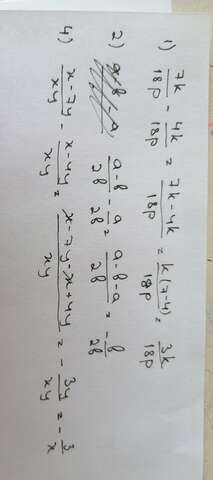 1) 7k/18p - 4k/18p = 7k-4k/18p = k(7-4)/18p = 3k/18p
2) a-b/2b - a/2b = a-b-a/2b = -b/2b
4) x-7y/xy - x-4y/xy = x-7y-x+4y/xy = -3y/xy = -3/x